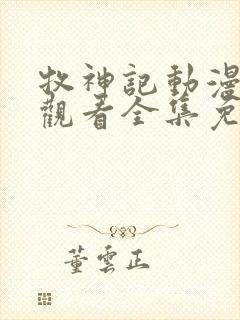 牧神記動漫
觀看全集免
董雲正